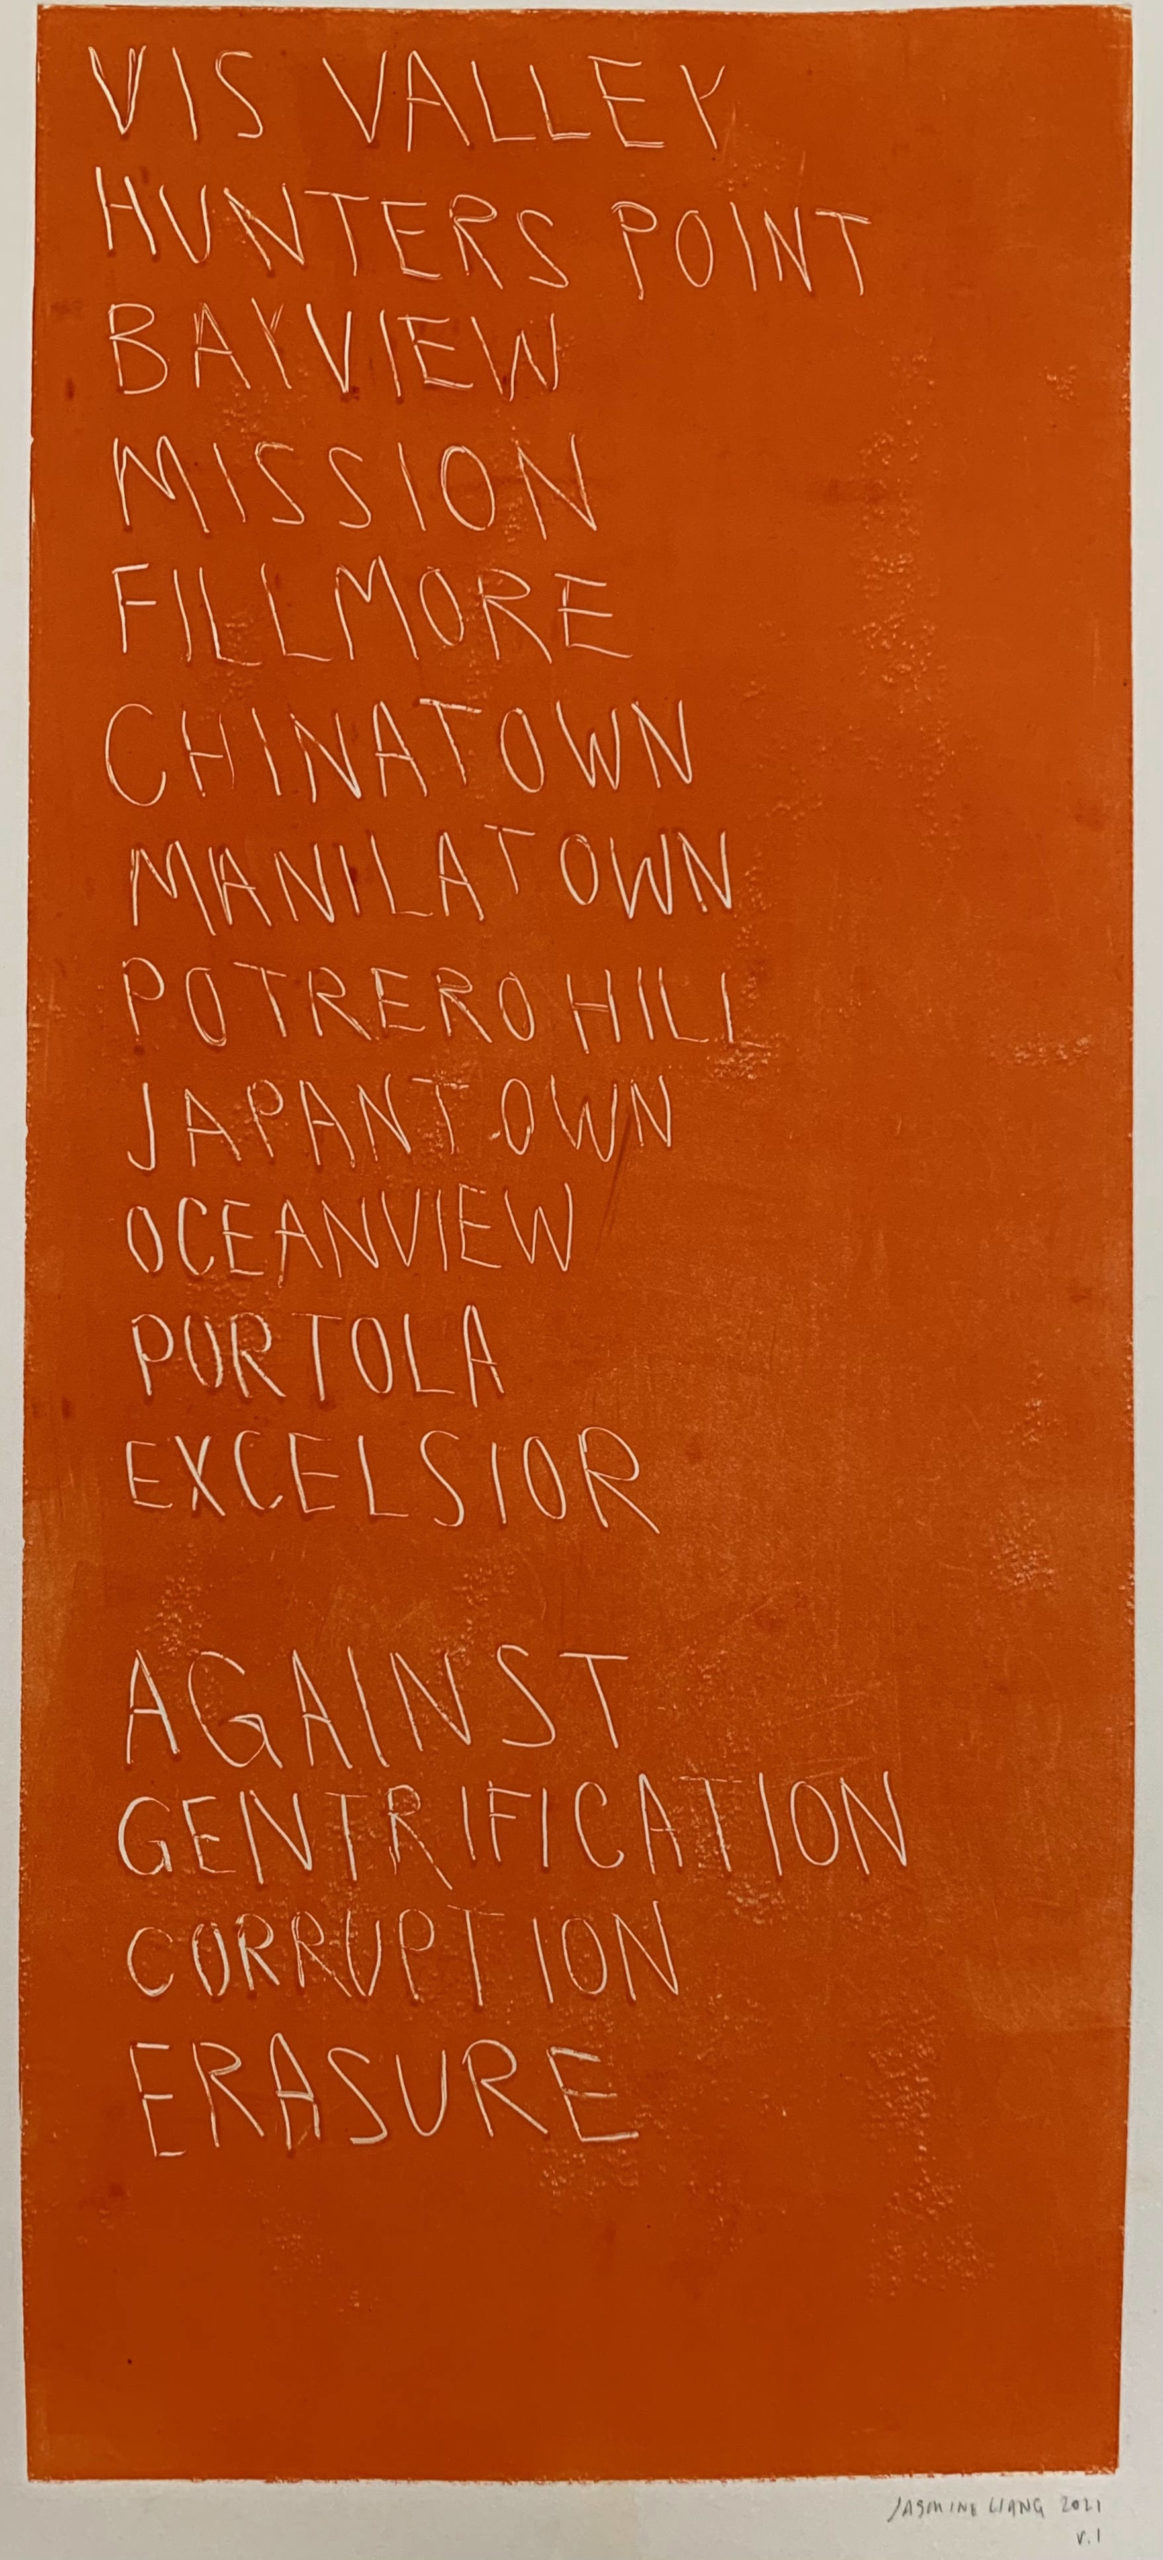 VIS VALLEY
HUNTERS POINT
BAYVIEW
MISSION
FILLMORE
CHINATOWN
MANILATOWN
POTRERO HILL
JAPANTOWN
OCEANVIEW
PORTOLA
EXCELSIOR
AGAINST
GENTRIFICATION
CORRUPTION
ERASURE
JASMINE LIANG 2021
v.1